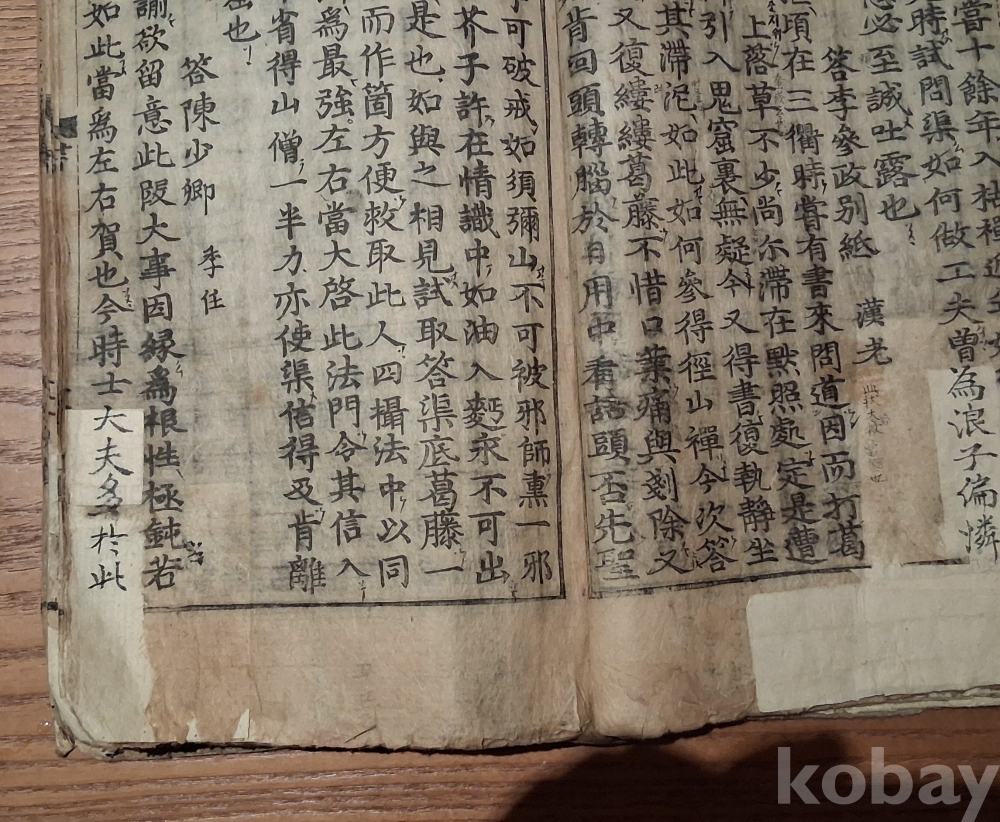 嘗十餘年入
時試問渠如何做工夫曾為浪子偏憐
必至誠吐露也
答李參政別紙 漢老
項在三衢時嘗有書來問道因而打葛
上落草不少尚尔滯在黙照處定是遭
引入鬼窟裏無疑今又得書復執静坐
其滯泥如此如何參得徑山禪今次答
又復縷縷葛藤不惜口業痛與剗除又
肯回頭轉腦於日用中看話頭否先聖
可破戒如須彌山不可被邪師熏一邪
芥子許在情識中如油入麪永不可出
是也如與之相見試取答渠底葛藤一
而作箇方便救取此人四攝法中以同
為最強左右當大啓此法門令其信入
省得山僧一半力亦使渠信得及肯離
也
答陳少卿 季任
諭欲留意此段大事因緣為根性極鈍若
如此當為左右賀也今時士大夫多於此
kobay